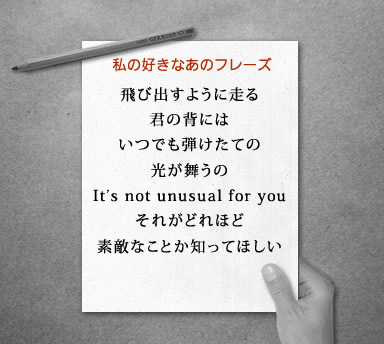 私の好きなあのフレーズ
飛び出すように走る
君の背には
いつでも弾けたての
光が舞うの
It's not unusual for you
それがどれほど
素敵なことか知ってほしい